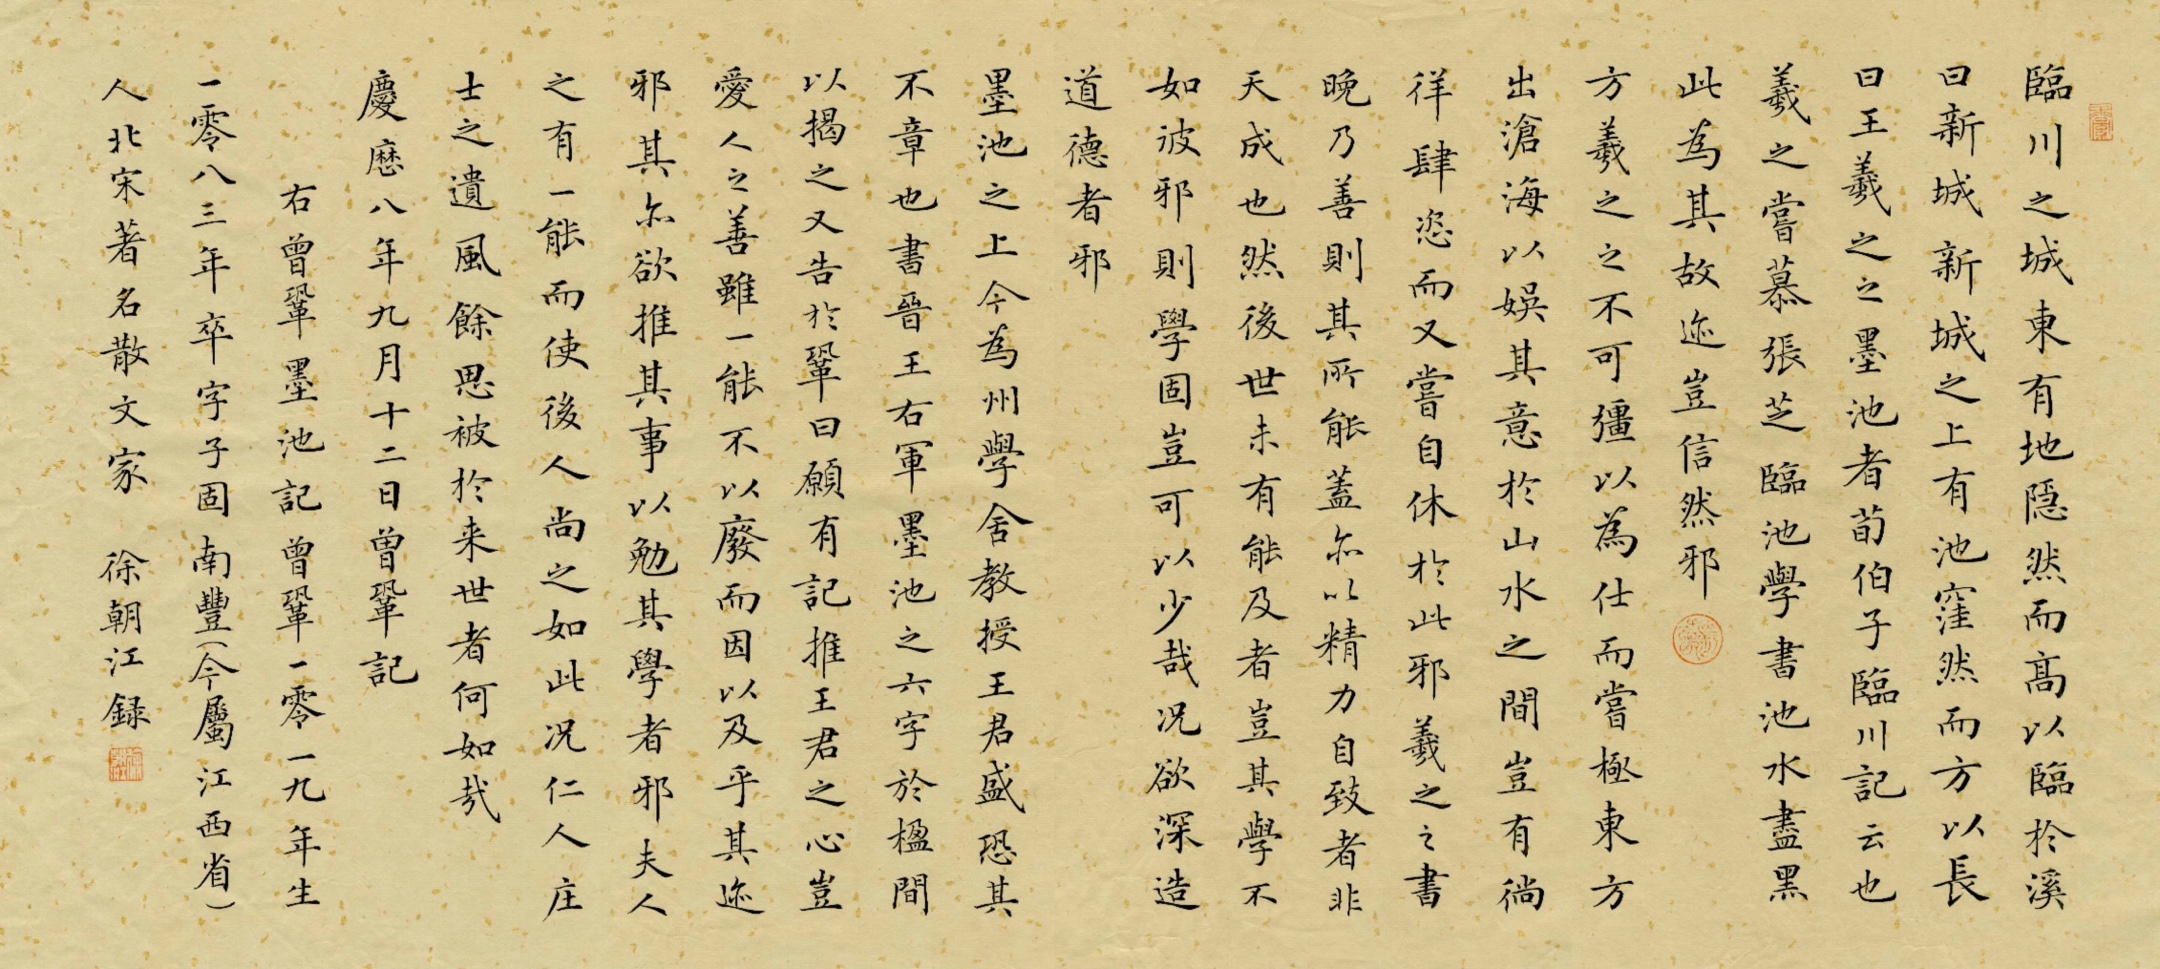 臨川之城東有地隱然而高以臨於溪
曰新城新城之上有池窪然而方以長
曰王羲之之墨池者荀伯子臨川記云也
羲之嘗慕張芝臨池學書池水盡黑
此為其故迹豈信然邪
方羲之之不可彊以為仕而嘗極東方
出滄海以娛其意於山水之間豈有徜
徉肆恣而又嘗自休於此邪羲之之書
晚乃善則其所能蓋亦以精力自致者非
天成也然後世未有能及者豈其學不
如彼邪則學固豈可以少哉況欲深造
道德者邪
墨池之上今為州學舍教授王君盛恐其
不章也書晉王右軍墨池之六字於楹間
以揭之又告於鞏曰願有記推王君之心豈
愛人之善雖一能不以廢而因以及乎其迹
邪其亦欲推其事以勉其學者邪夫人
之有一能而使後人尚之如此況仁人庄
士之遺風餘思被於来世者何如哉
慶曆八年九月十二日曾鞏記
右曾鞏墨池記曾鞏一零一九年生
一零八三年卒字子固南豐(今屬江西省)
人北宋著名散文家 徐朝江録